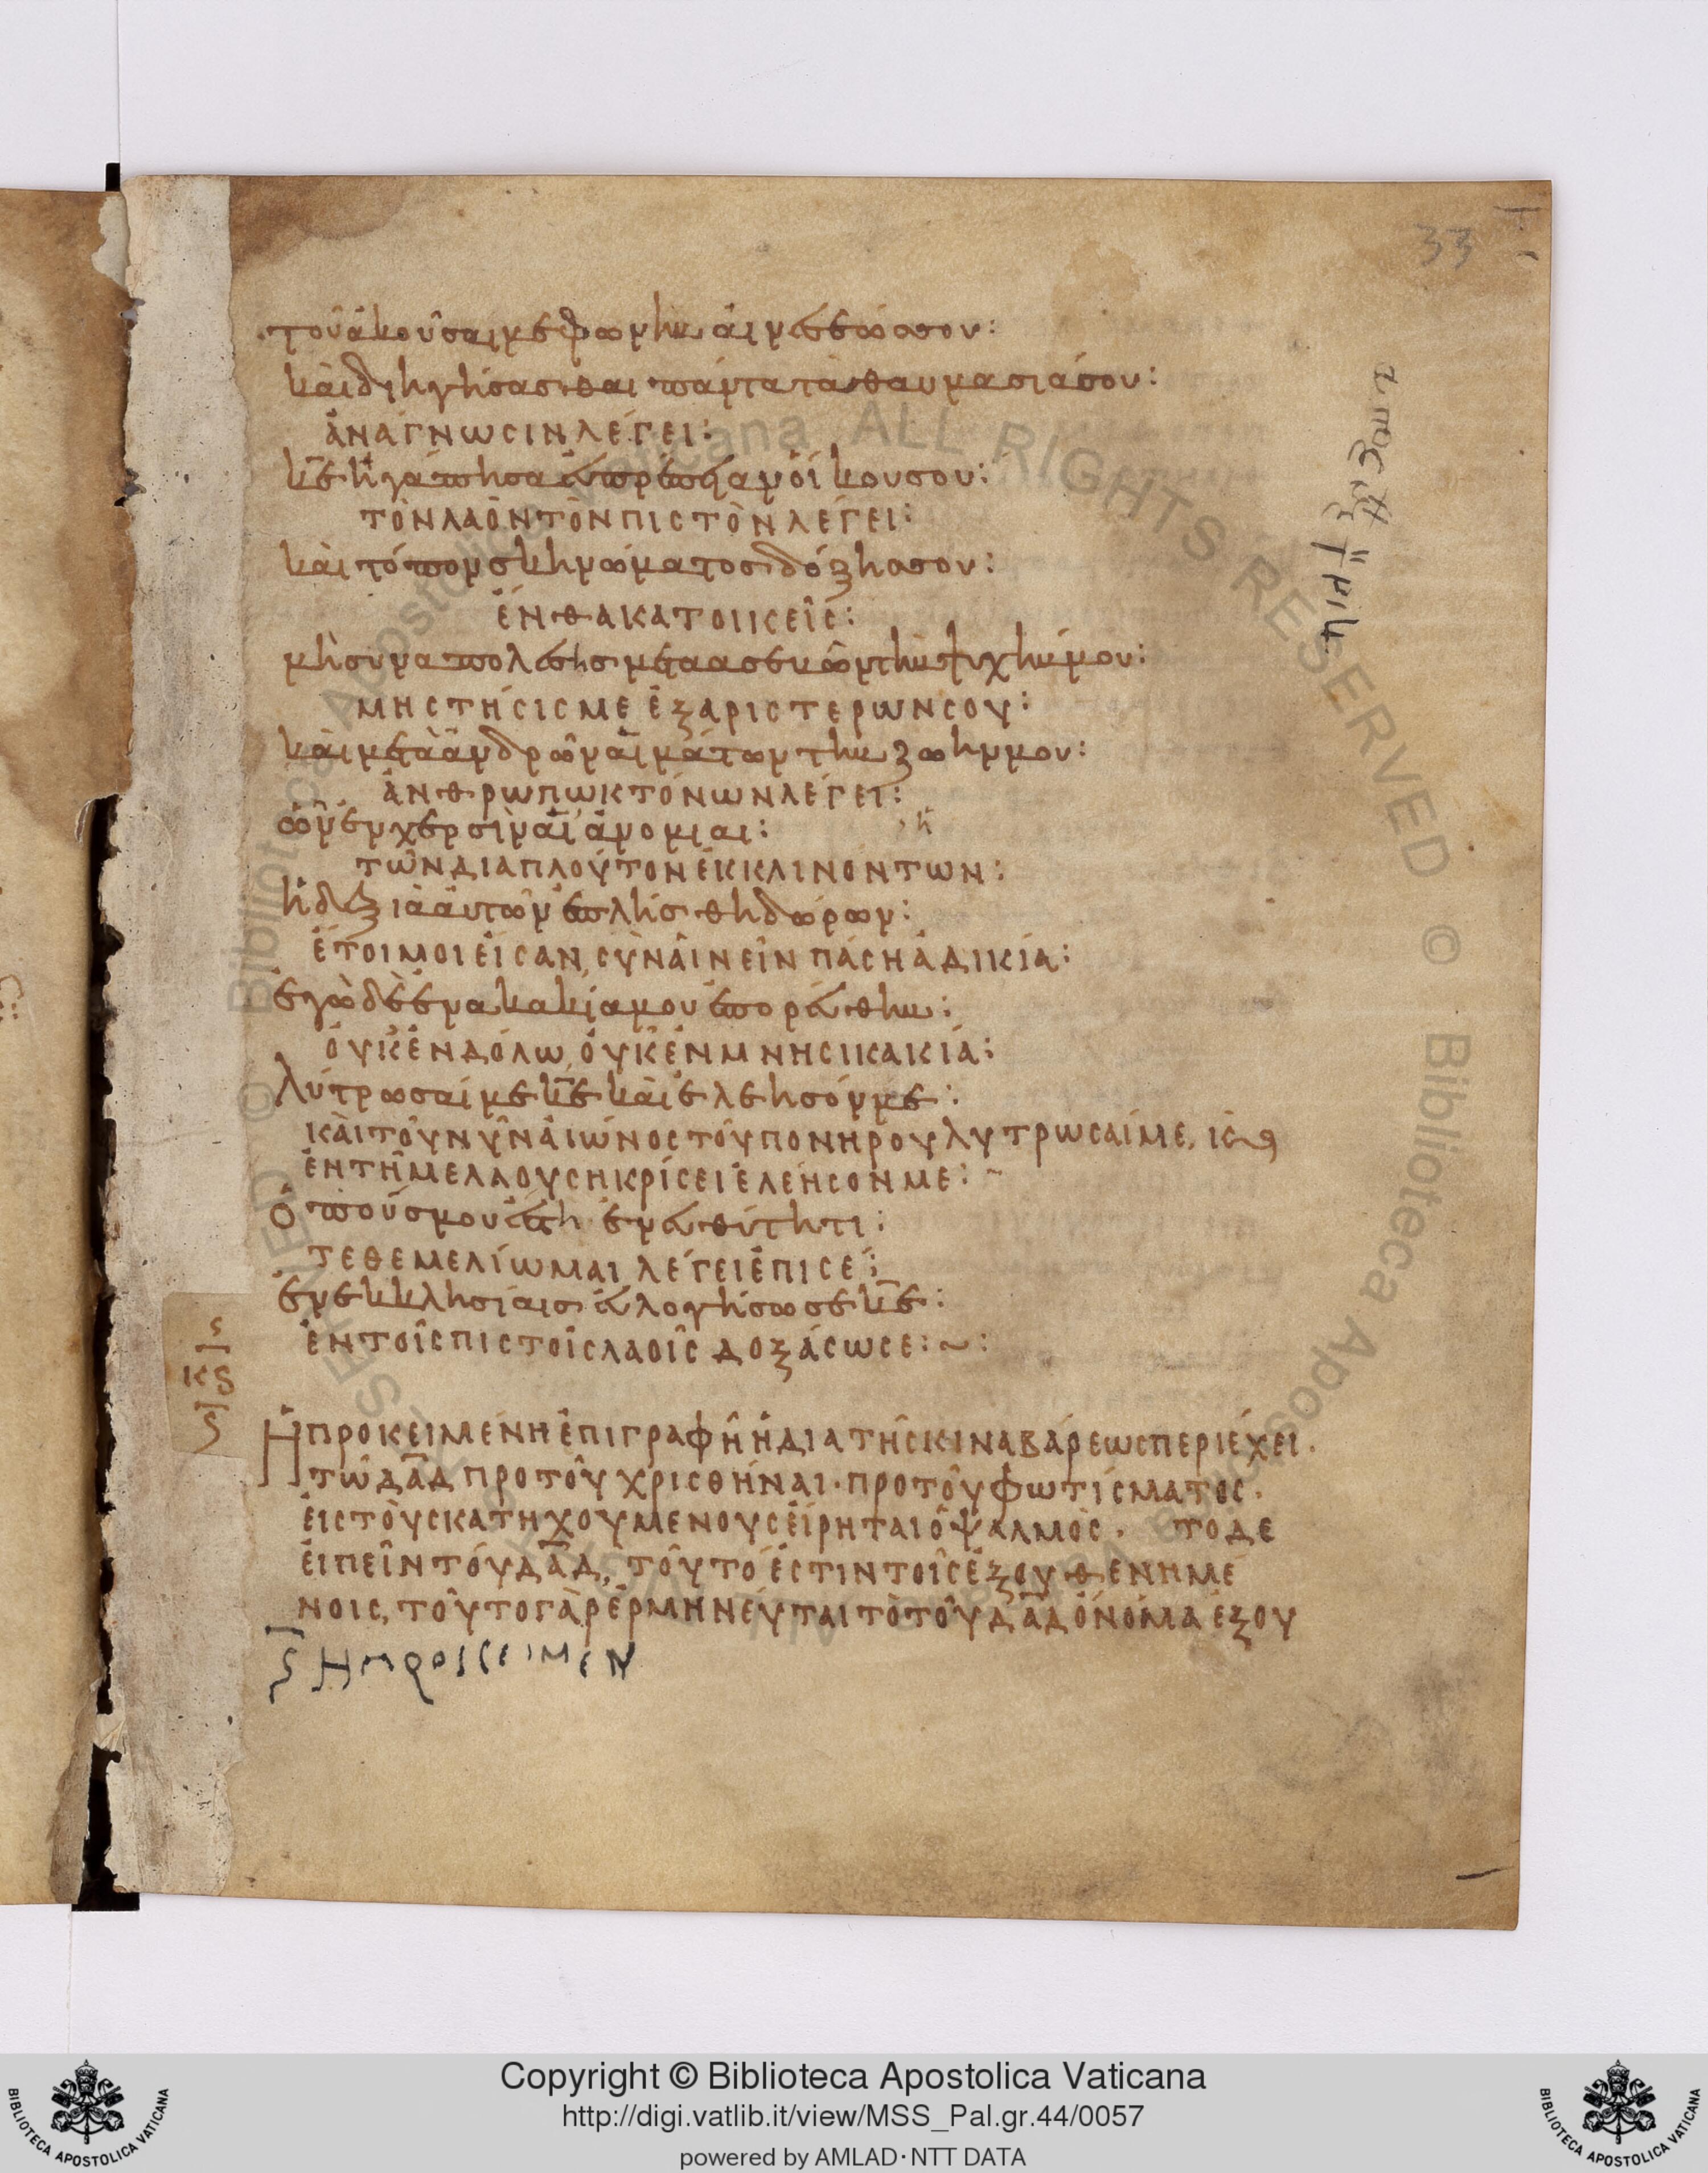 33
τοῦ ἀκοῦσαί με φωνὴν αἰνέσεώς σου:
καὶ διηγήσασθαι πάντα τὰ θαυμάσιά σου:
ἀνάγνωσιν λέγει:
κ̅ε̅ ἠγάπησα εὐπρέπειαν οἴκου σου:
τὸν λαὸν τὸν πιστὸν λέγει:
καὶ τόπον σκηνώματος δόξης σου:
ἔνθα κατοικεῖς:
μὴ συναπολέσης μετὰ ασεβῶν τὴν ψυχήν μου:
μη στήσις με ἐξ αριστερων σου:
καὶ μετὰ ἀνδρῶν αἱμάτων τὴν ζωήν μου:
ἀνθρωπωκτόνων λέγει:
ὧν ἐν χερσὶν αἱ ἀνομιαι:
τῶν δια πλούτον ἐκκλινόντων:
ἡ δεξιὰ ἀυτῶν ἐπλήσθη δώρων:
ἕτοιμοι εἰσαν, σὺν αἰνεῖν πάση ἀδικία:
ἐγὼ δὲ ἐν ακακία μου ἐπορεύθην:
ὀυκ ἐν δόλω, ὀυκ ἐν μνησικακιά:
λύτρωσαί με κ̅ε̅ καὶ ἐλεησόν με:
καὶ τοὺ νῦν ἀιώνος τοῦ πονηρου λυτρωσαίμε, κ̀
ἐν τῆ μελλούση κρίσει ἐλεήσον με:
ὁ ποῦς μου ἔστη ἐν εὐθύτητι:
τεθεμελίωμαι λέγει ἐπι σε:
ἐν εκκλησίαις ἐυλογήσω σε κ̅ε̅:
ἐν τοῖς πιστοῖς λαοῖς δοξάσω σε:~:
κϛ
Ἡ προκειμένη ἐπιγραφὴ ἡ δια τῆς κινναβάρεως περιέχει.
τῶ δ̅α̅δ̅ προ τοῦ χρισθῆναι· προ τοῦ φωτίσματος.
ἐις τοὺς κατηχουμενους ἐίρηται ὁ ψαλμὸς. το δε
ἐιπεῖν τόυ δ̅α̅δ̅, τοῦτό ἐστιν τοῖς ἐξουθενημέ
νοις, τοῦτο γὰρ ἑρμηνέυται τὸ τοῦ δ̅α̅δ̅ ὀνόμα ἐξου
ϛ Η προκειμεν